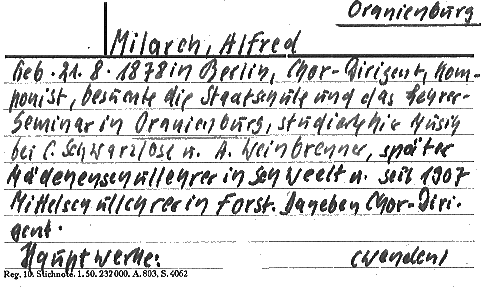 Oranienburg
Milarch, Alfred
Geb. 21. 8. 1878 in Berlin, Chor-Dirigent, Kom-
ponist, besuchte die Staatschule und das Lehrer-
Seminar in Oranienburg, studierte hier Musik
bei C. Schwarzlose u. A. Weinbrenner, später
Mädchenschullehrer in Schwedt u. seit 1907
Mittelschullehrer in Forst. Daneben Chor-Diri-
gent.
Hauptwerke: (wenden)
Reg. 10. Stichnote. 1. 50. 232000. A. 803. S. 4062